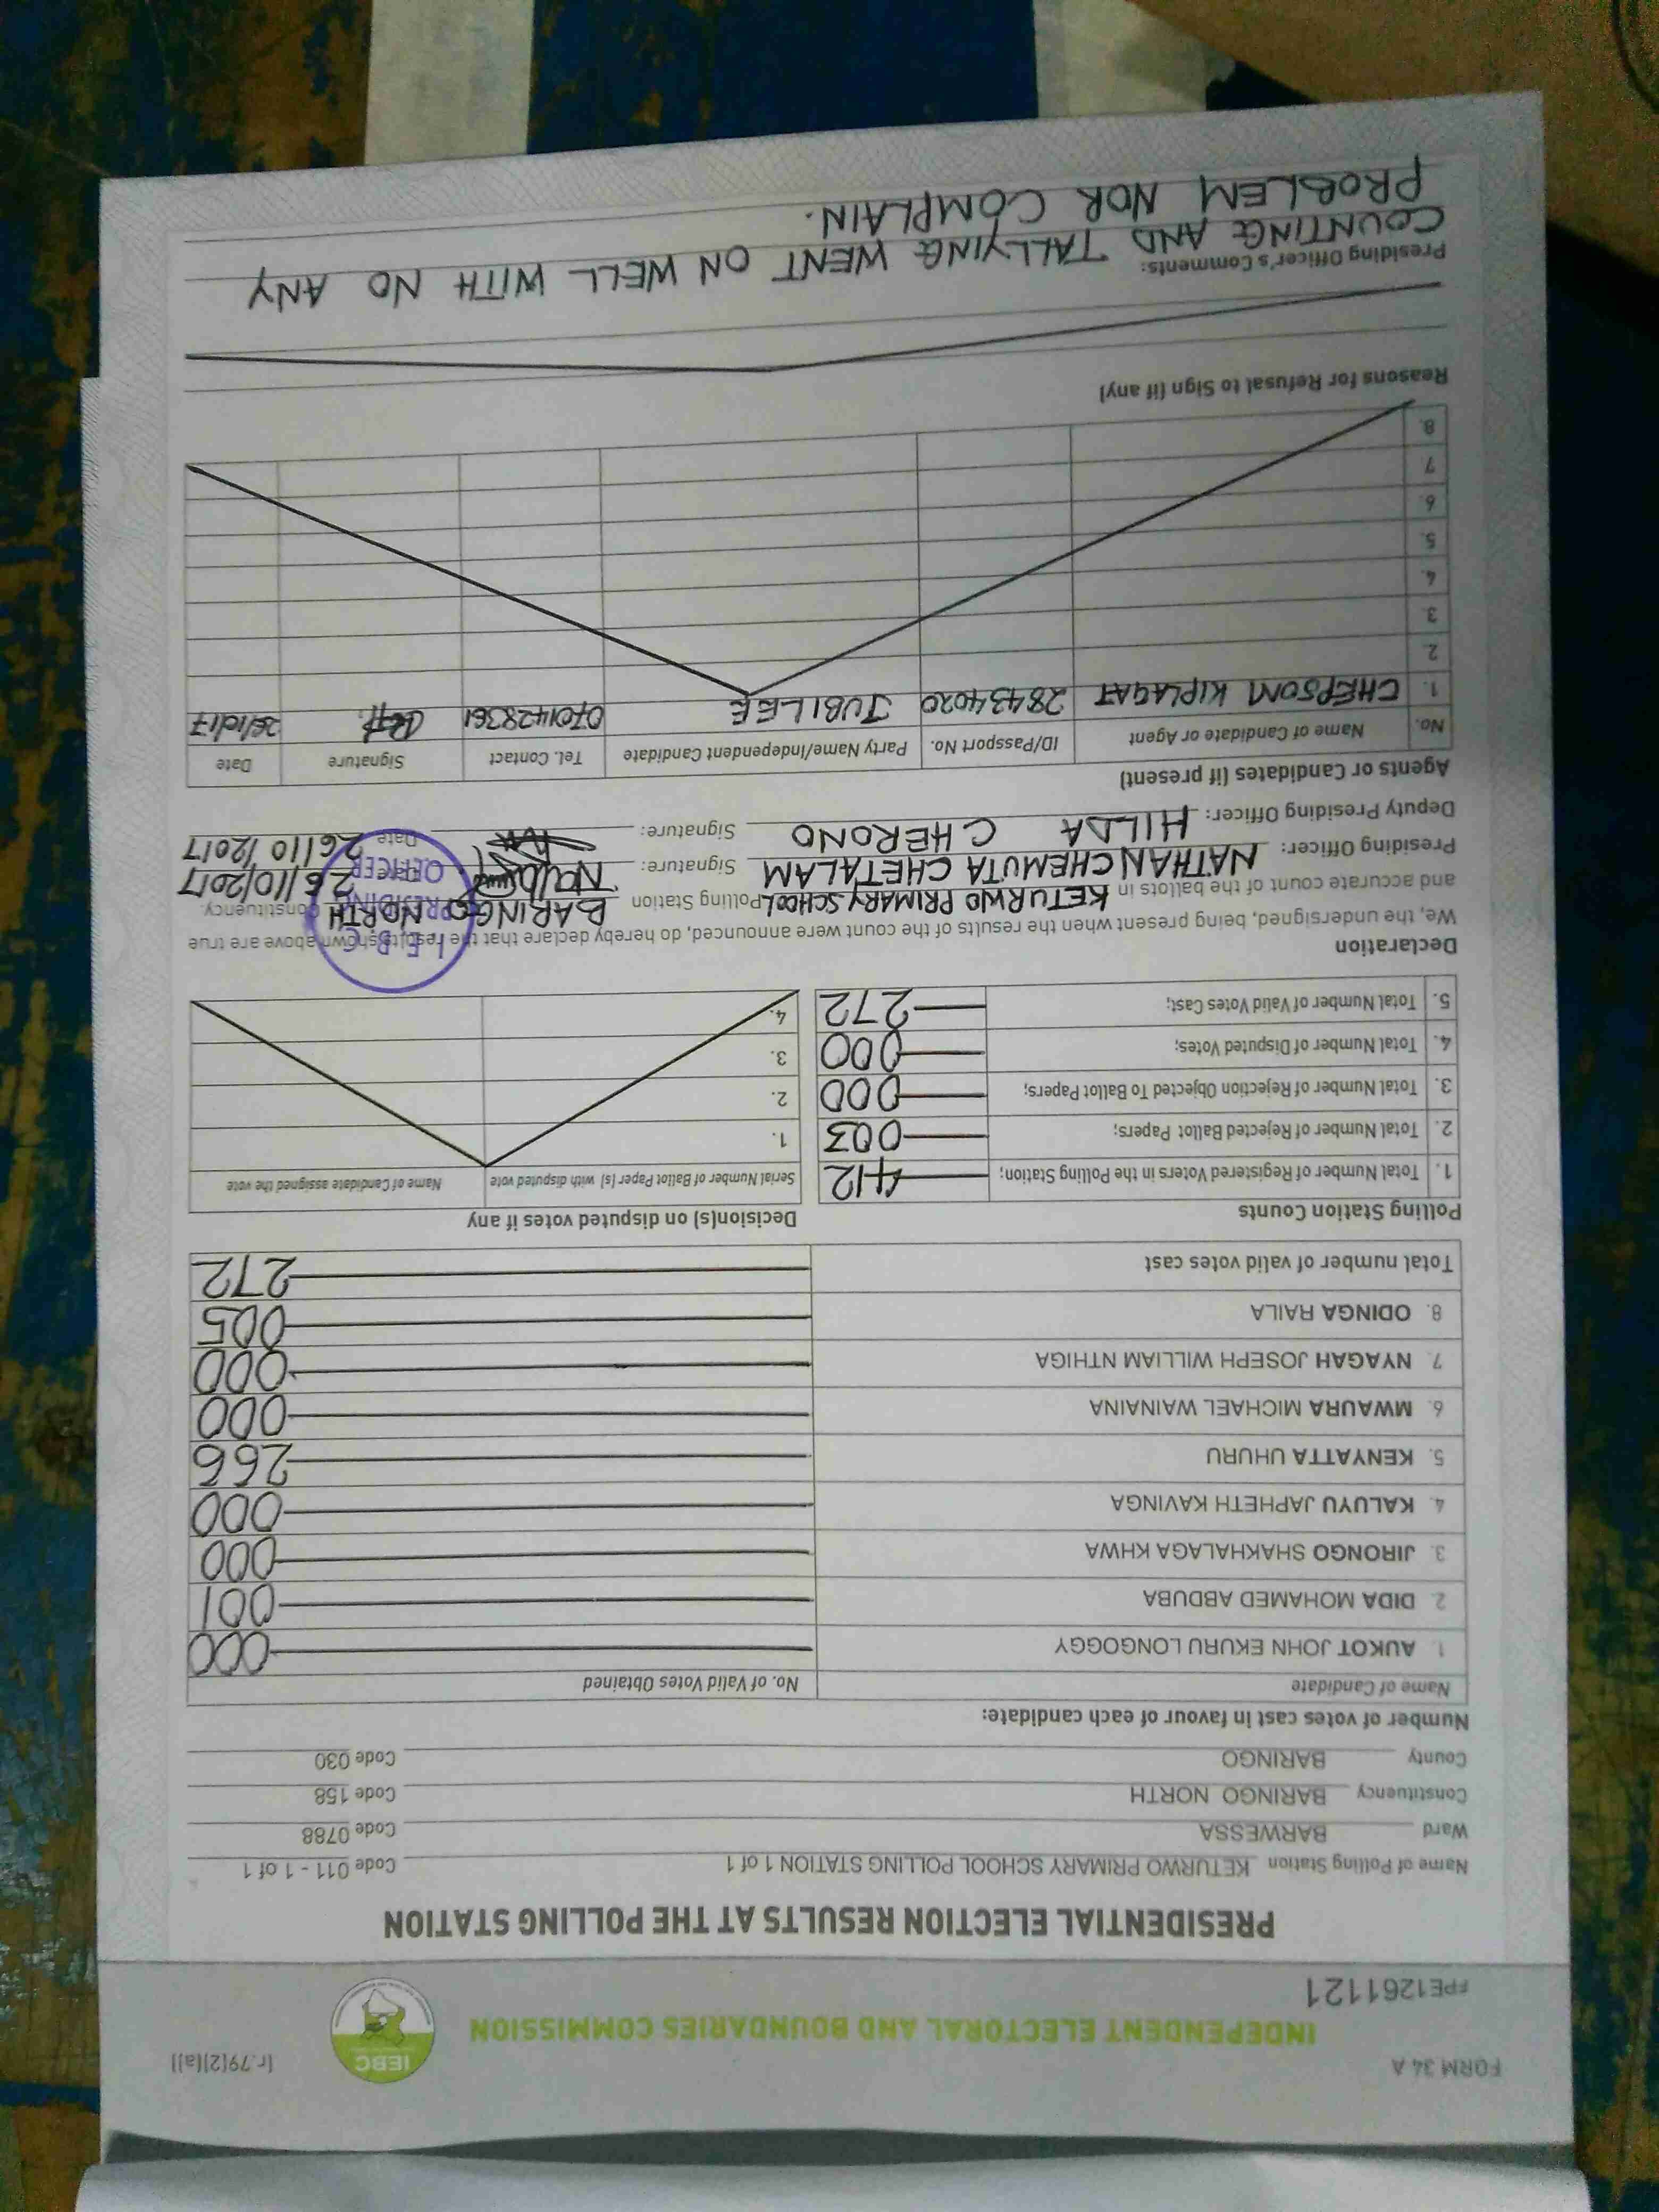 FORM 34 A
(r.79(2)(a))
IEBC
INDEPENDENT ELECTORAL AND BOUNDARIES COMMISSION
FPE1261121
PRESIDENTIAL ELECTION RESULTS AT THE POLLING STATION
Name of Polling Station KETURWO PRIMARY SCHOOL POLLING STATION 1 of 1 Code 011 - 1 of 1
Ward BARWESSA Code 0788
Constituency BARINGO NORTH Code 158
County BARINGO Code 030
Number of votes cast in favour of each candidate:
Name of Candidate No. of Valid Votes Obtained
1. AUKOT JOHN EKURU LONGOGGY 000
2. DIDA MOHAMED ABDUBA 001
3. JIRONGO SHAKHALAGA KHWA 000
4. KALUYU JAPHETH KAVINGA 000
5. KENYATTA UHURU 266
6. MWAURA MICHAEL WAINAINA 000
7. NYAGAH JOSEPH WILLIAM NTHIGA 000
8. ODINGA RAILA 005
Total number of valid votes cast 272
Polling Station Counts
1. Total Number of Registered Voters in the Polling Station; 412
2. Total Number of Rejected Ballot Papers; 003
3. Total Number of Rejection Objected To Ballot Papers; 000
4. Total Number of Disputed Votes; 000
5. Total Number of Valid Votes Cast; 272
Decision(s) on disputed votes if any
Serial Number of Ballot Paper (s) with disputed vote Name of Candidate assigned the vote
1.
2.
3.
4.
Declaration
We, the undersigned, being present when the results of the count were announced, do hereby declare that the results shown above are true
and accurate count of the ballots in KETURWO PRIMARY SCHOOL Polling Station BARINGO NORTH Constituency.
Presiding Officer: NATHAN CHEMUTA CHETALAM Signature: Date 26/10/2017
Deputy Presiding Officer: HILDA CHERONO Signature: Date 26/10/2017
I.E.B.C
PRESIDING
OFFICER
Agents or Candidates (if present)
No. Name of Candidate or Agent ID/Passport No. Party Name/Independent Candidate Tel. Contact Signature Date
1. CHEPSOM KIPLAGAT 28434020 JUBILEE 0701428361 26/10/17
2.
3.
4.
5.
6.
7.
8.
Reasons for Refusal to Sign (if any)
Presiding Officer's Comments:
COUNTING AND TALLYING WENT ON WELL WITH NO ANY
PROBLEM NOR COMPLAIN.